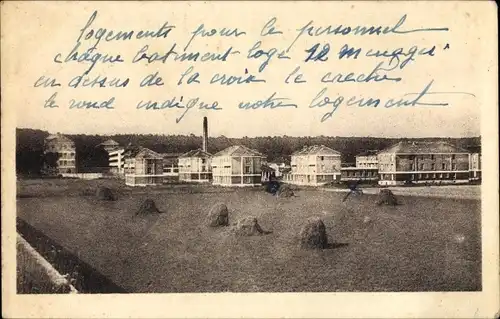 logements pour le personnel
chaque batiment loge 12 menages.
en dessus de la croix le creche
le rond indique notre logement